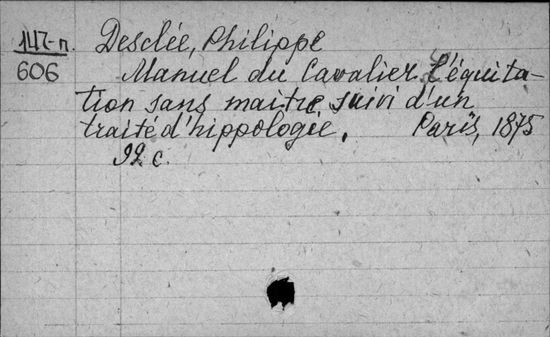 Desclée, Philippe
Manuel du Cavalier. L'équita-
tion sans maitre suivi d'un
traité d'hippologie. Paris, 1875
92 c.
606